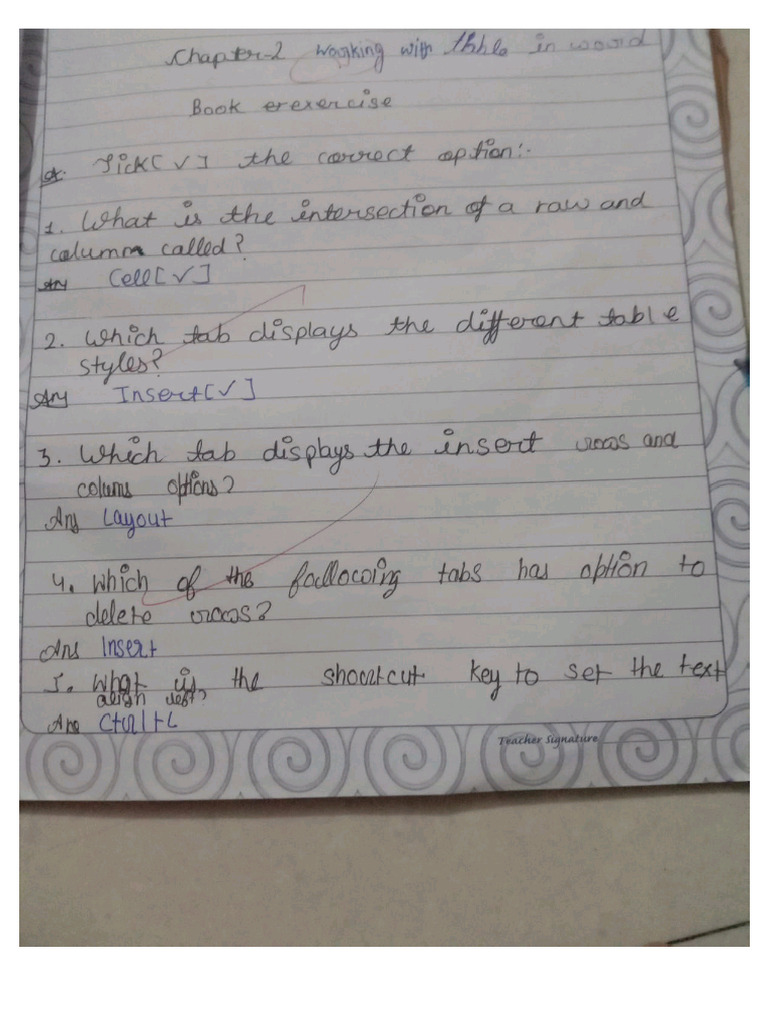 Chapter-2 Working with table in word
Book erexercise
Q. Tick[✓] the correct option:-
1. What is the intersection of a raw and
column called?
Ans Cell[✓]
2. Which tab displays the different table
styles?
Ans Insert[✓]
3. Which tab displays the insert rows and
colums options?
Ans Layout
4. Which of the following tabs has option to
delete rows?
Ans Insert
5. What is the shourtcut key to set the text
align left?
Ans Ctrl+L
Teacher Signature